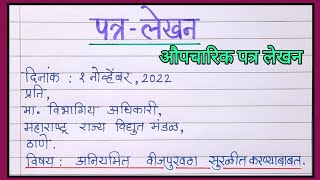 पत्र-लेखन
औपचारिक पत्र लेखन
दिनांक : १ नोव्हेंबर, 2022
प्रति,
मा. विभागिय अधिकारी,
महाराष्ट्र राज्य विद्युत मंडळ,
ठाणे.
विषय : अनियमित वीजपुरवठा सुरळीत करण्याबाबत.